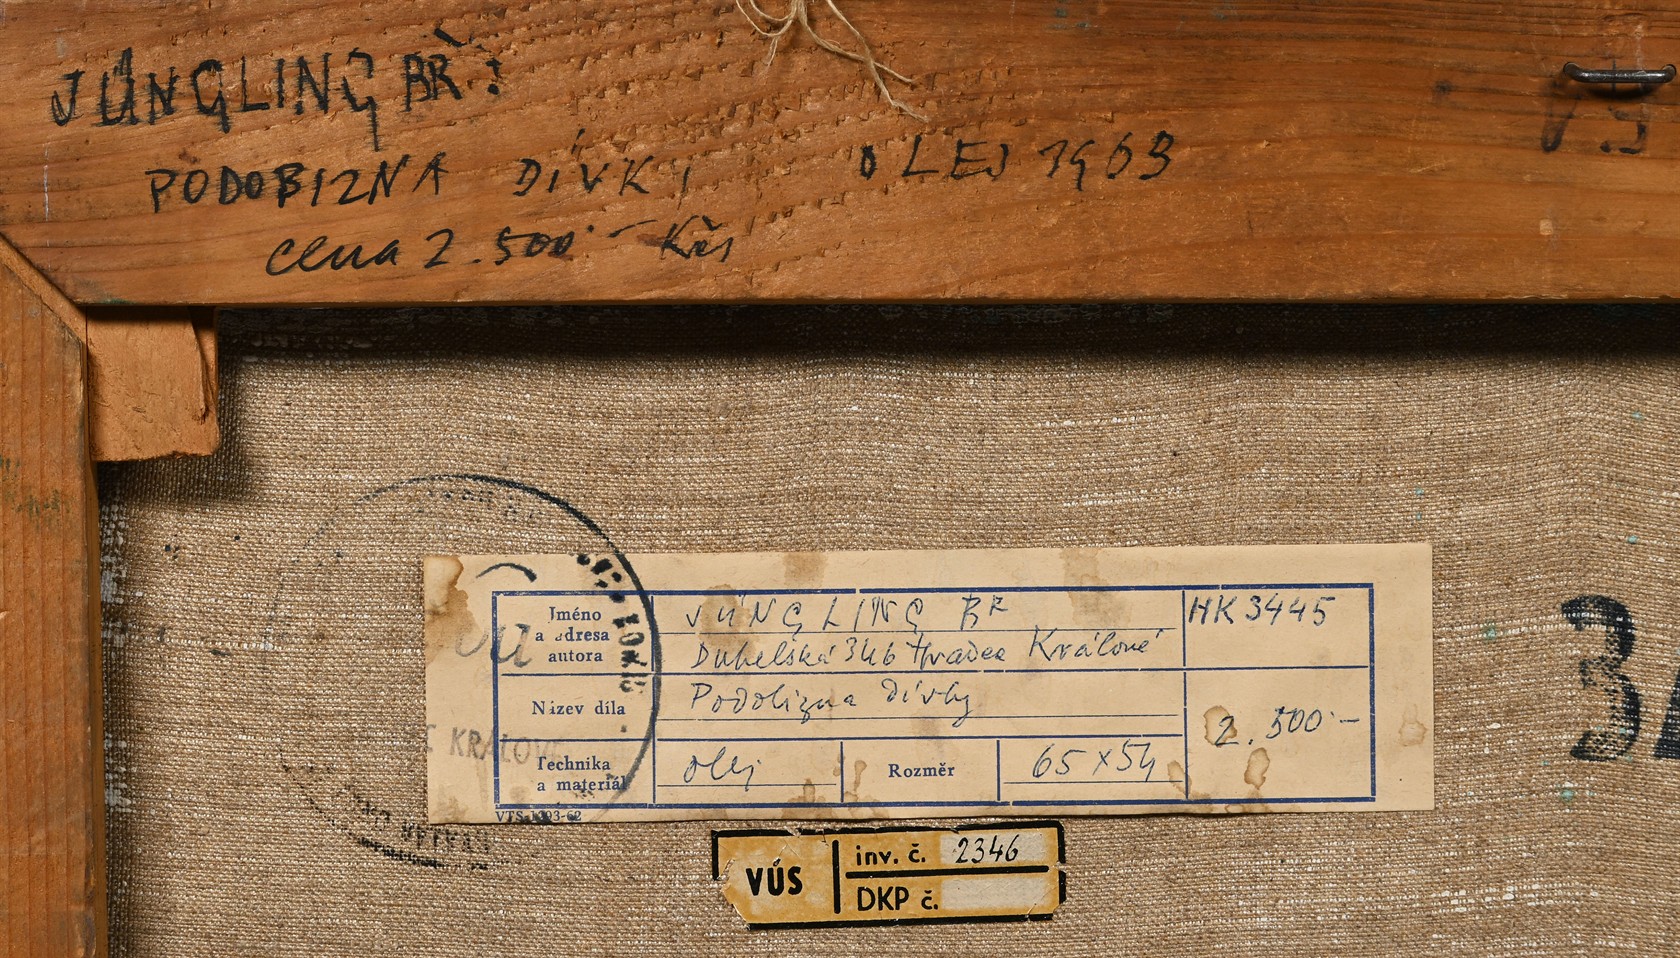 JÜNGLING BŘ:
PODOBIZNA DÍVKY OLEJ 1963
cena 2.500.– Kčs
Jméno
a adresa
autora
JÜNGLING BŘ
Dubelská 346 Hradec Králové
HK 3445
Název díla
Podobizna dívky
2.500.–
Technika
a materiál
olej
Rozměr
65 x 54
KRÁLOVÉ
VTS-1293-62
VÚS
inv. č. 2346
DKP č.